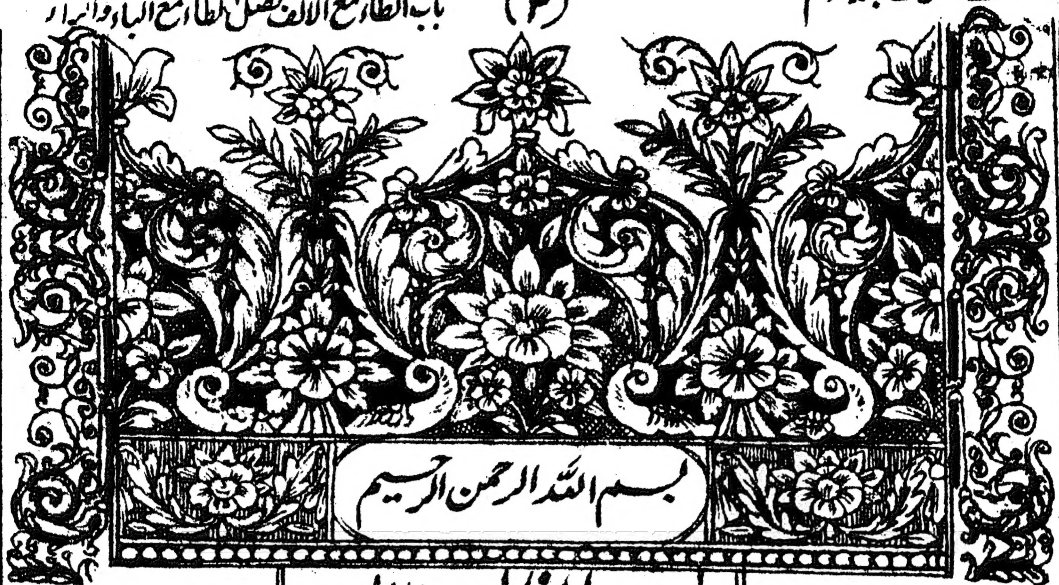 باب الطاء مع الالف فصل لطاء مع الباء والراء
(۲)
بسم الله الرحمن الرحيم